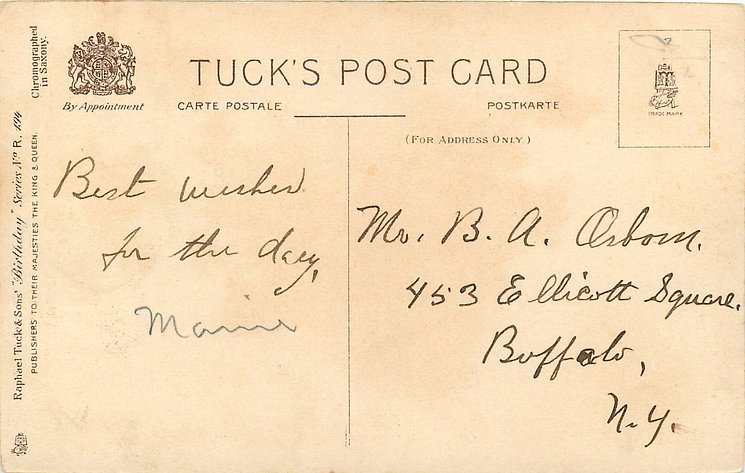 Chromographed
in Saxony.
By Appointment
TUCK'S POST CARD
CARTE POSTALE
POSTKARTE
(FOR ADDRESS ONLY.)
TRADE MARK
Raphael Tuck & Sons' "Birthday" Series No R. 1514
PUBLISHERS TO THEIR MAJESTIES THE KING & QUEEN.
Best wishes
for the day,
Mr. B. A. Osborn.
453 Ellicott Square.
Buffalo,
N.Y.